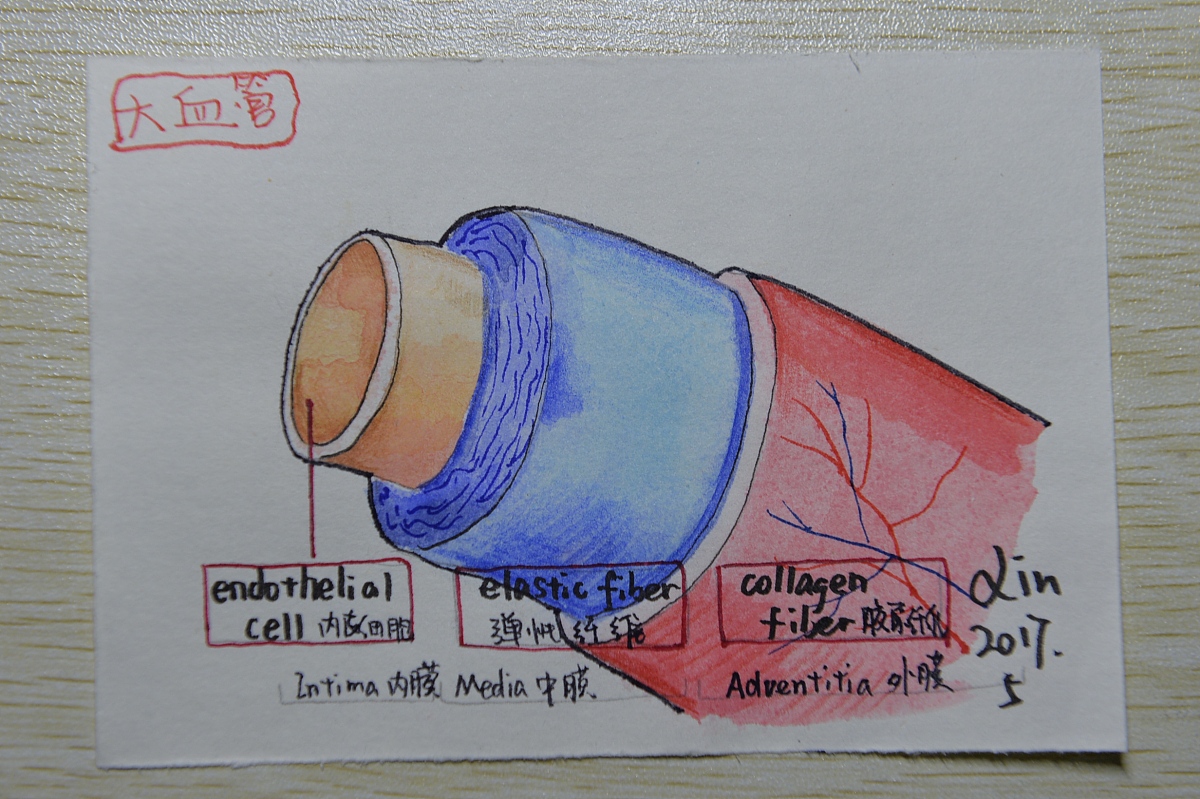 大血管
endothelial
cell 内皮细胞
elastic fiber
弹性纤维
collagen
fiber 胶原纤维
Intima 内膜
Media 中膜
Adventitia 外膜
Lin
2017.
5